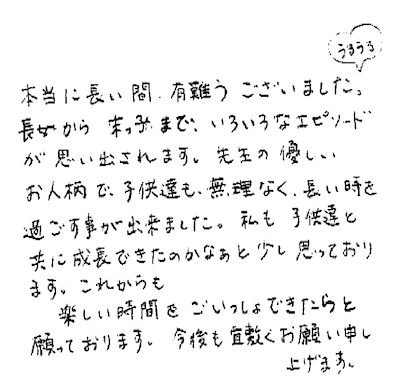 うるうる
本当に長い間、有難う ございました。
長女から 末っ子まで、いろいろなエピソード
が 思い出されます。先生の 優しい
お人柄で、子供達も、無理なく、長い時を
過ごす事が出来ました。私も 子供達と
共に成長できたのかなぁと 少し 思っており
ます。これからも
楽しい時間を ごいっしょできたらと
願っております。今後も宜敷くお願い申し
上げます。